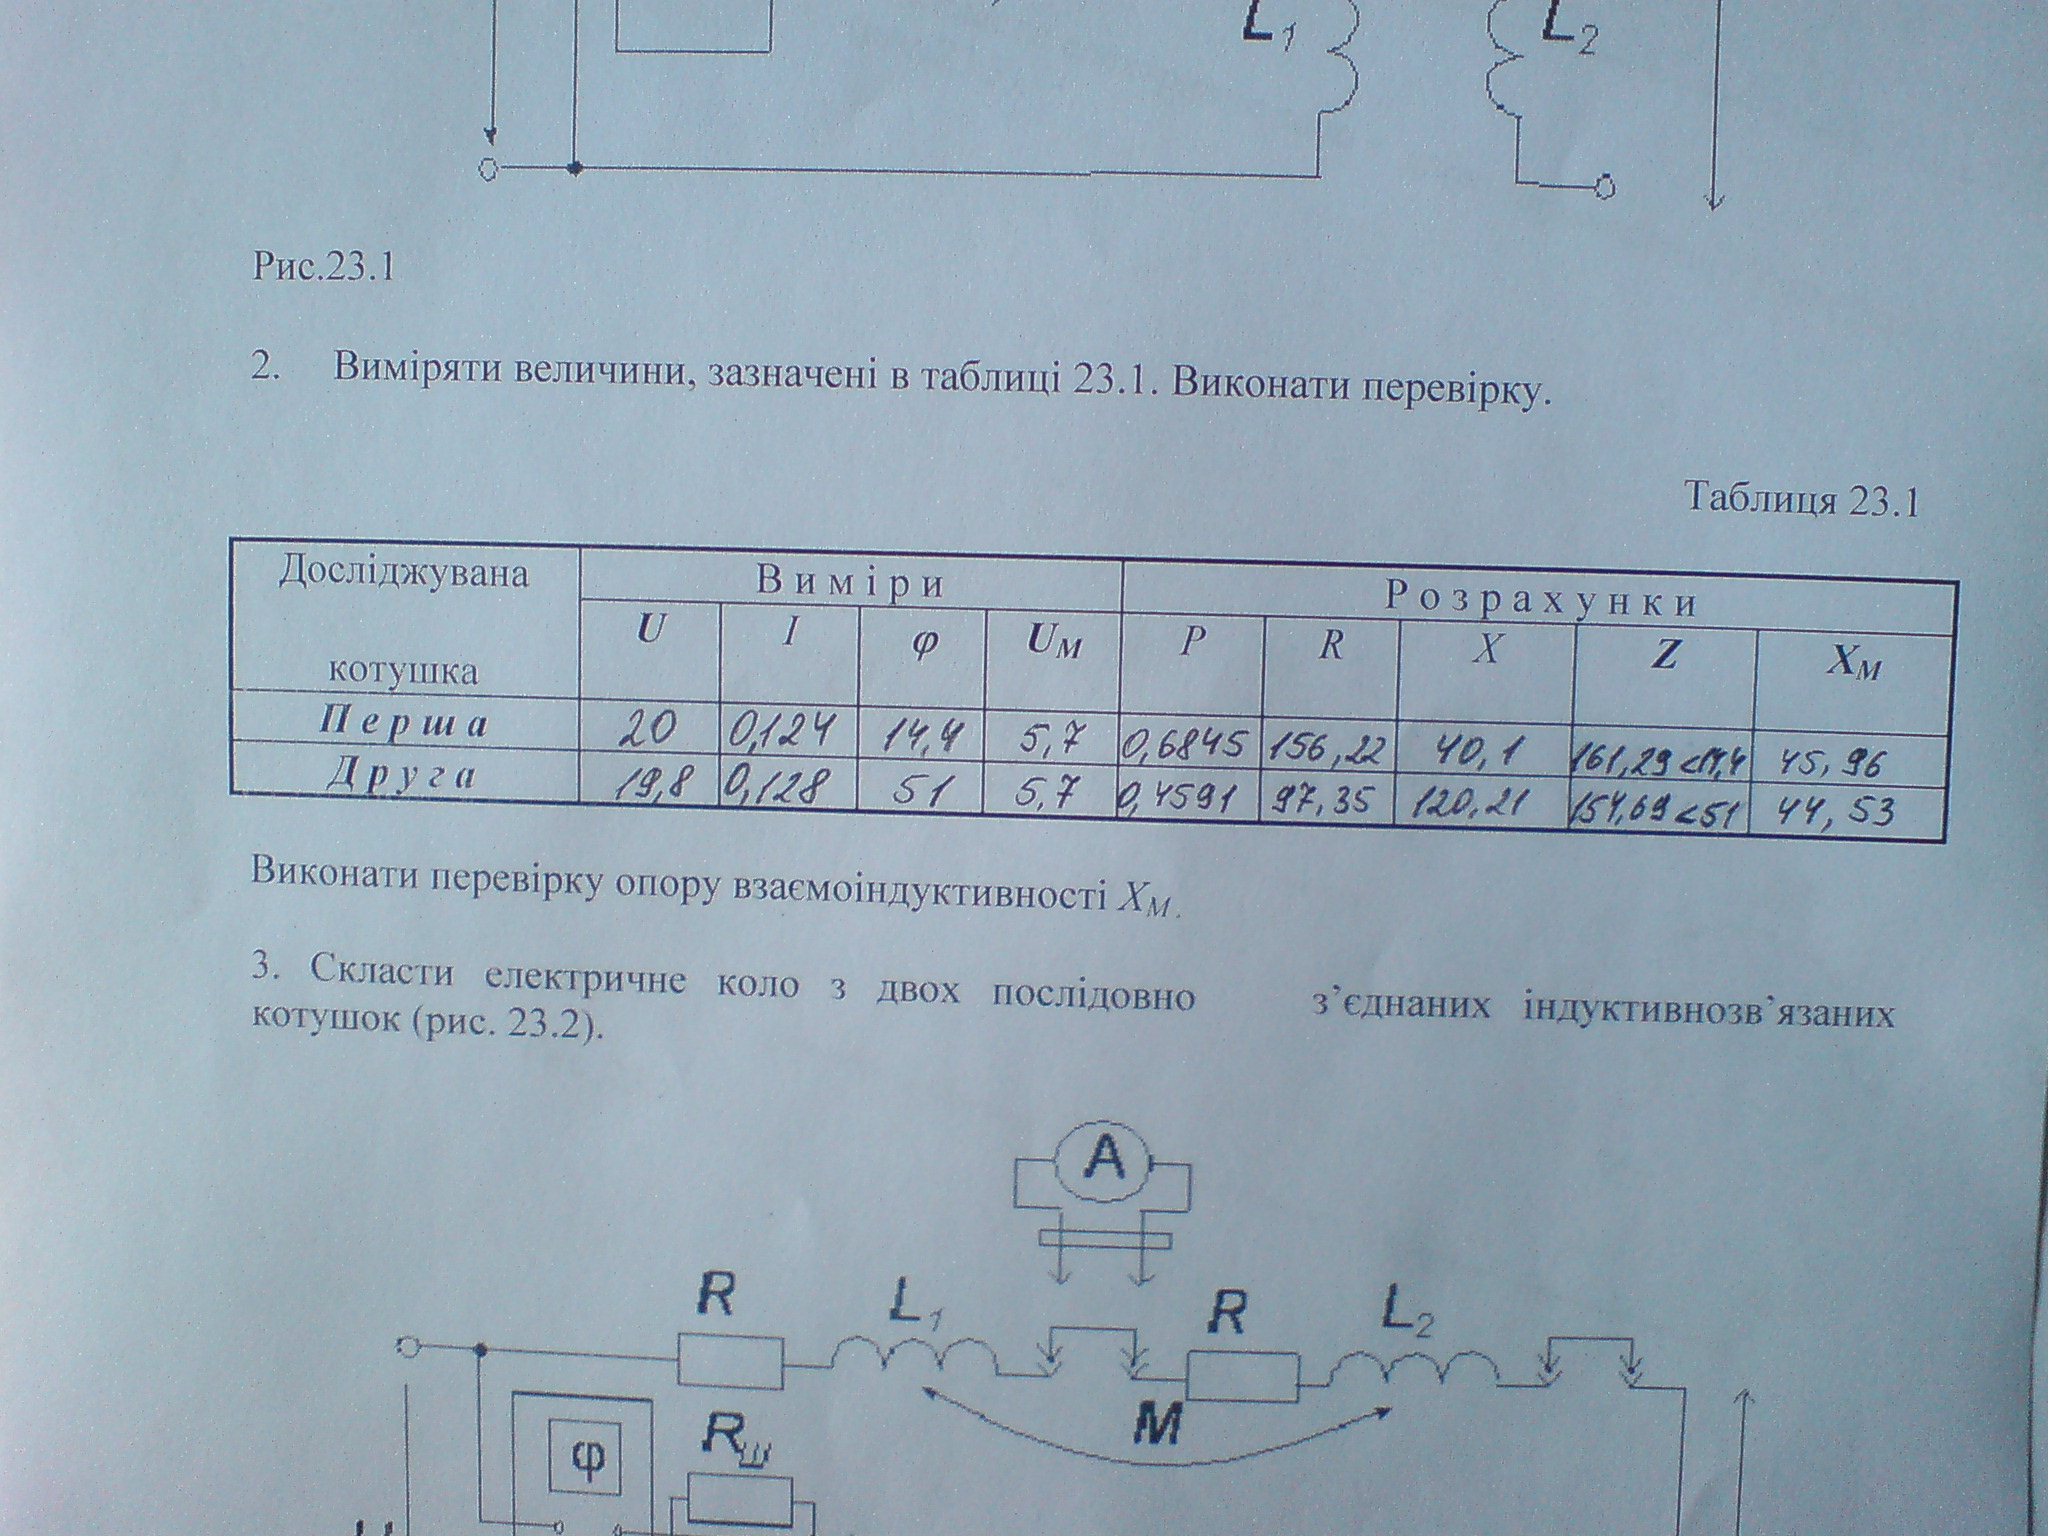 L1 L2
Рис.23.1
2. Виміряти величини, зазначені в таблиці 23.1. Виконати перевірку.
Таблиця 23.1
Досліджувана котушка Виміри Розрахунки
U I φ UM P R X Z XM
Перша 20 0,124 14,4 5,7 0,6845 156,22 40,1 161,29<14,4 45,96
Друга 19,8 0,128 51 5,7 0,4591 97,35 120,21 154,69<51 44,53
Виконати перевірку опору взаємоіндуктивності XM.
3. Скласти електричне коло з двох послідовно з’єднаних індуктивнозв’язаних
котушок (рис. 23.2).
A
R L1 R L2
M
φ Rш